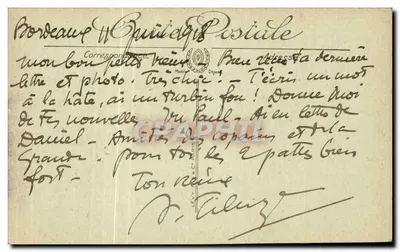 Bordeaux 11 Juin 1918
Carte Postale
Correspondance
mon bon petit vieux - Bien reçu ta dernière
lettre et photo - très chic - T'écris un mot
à la hâte, ai un turbin fou! Donne moi
de tes nouvelles. Du Paul - Ai eu lettre de
Daniel - Amitiés des copains et de la
Grande - pour toi les 2 pattes bien
fort -
Ton vieux